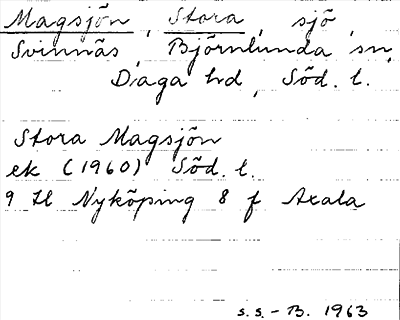 Magsjön, Stora, sjö,
Svinnäs, Björnlunda sn,
Daga hd, Söd. l.
Stora Magsjön
ek (1960) Söd. l.
9 H Nyköping 8 f Axala
S.S.-B. 1963